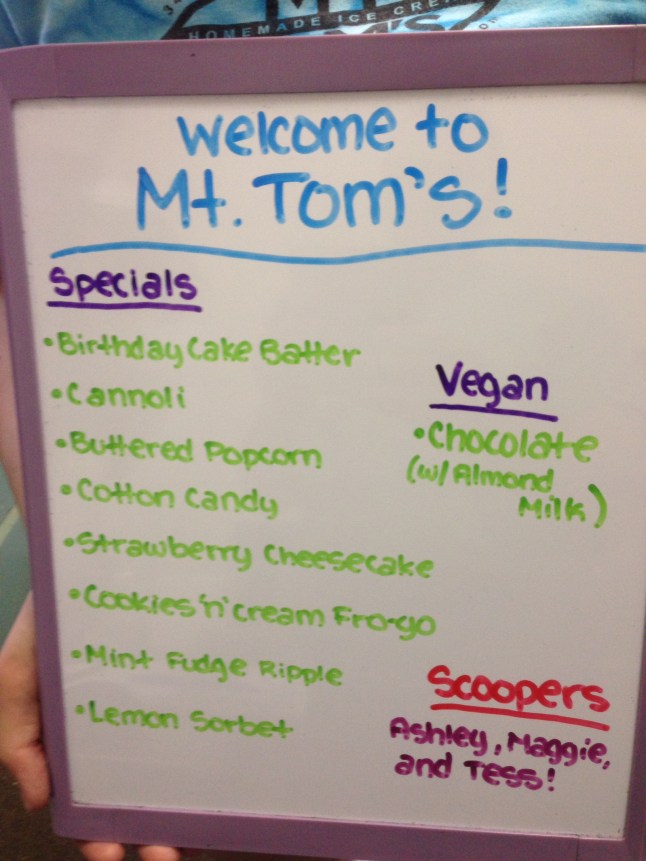 HOMEMADE ICE CRE
Welcome to
Mt. Tom's!
Specials
• Birthday Cake Batter
• Cannoli
• Buttered Popcorn
• Cotton Candy
• Strawberry Cheesecake
• Cookies 'n' Cream Fro-yo
• Mint Fudge Ripple
• Lemon Sorbet
Vegan
• Chocolate
(w/ Almond
Milk)
Scoopers
Ashley, Maggie,
and Tess!